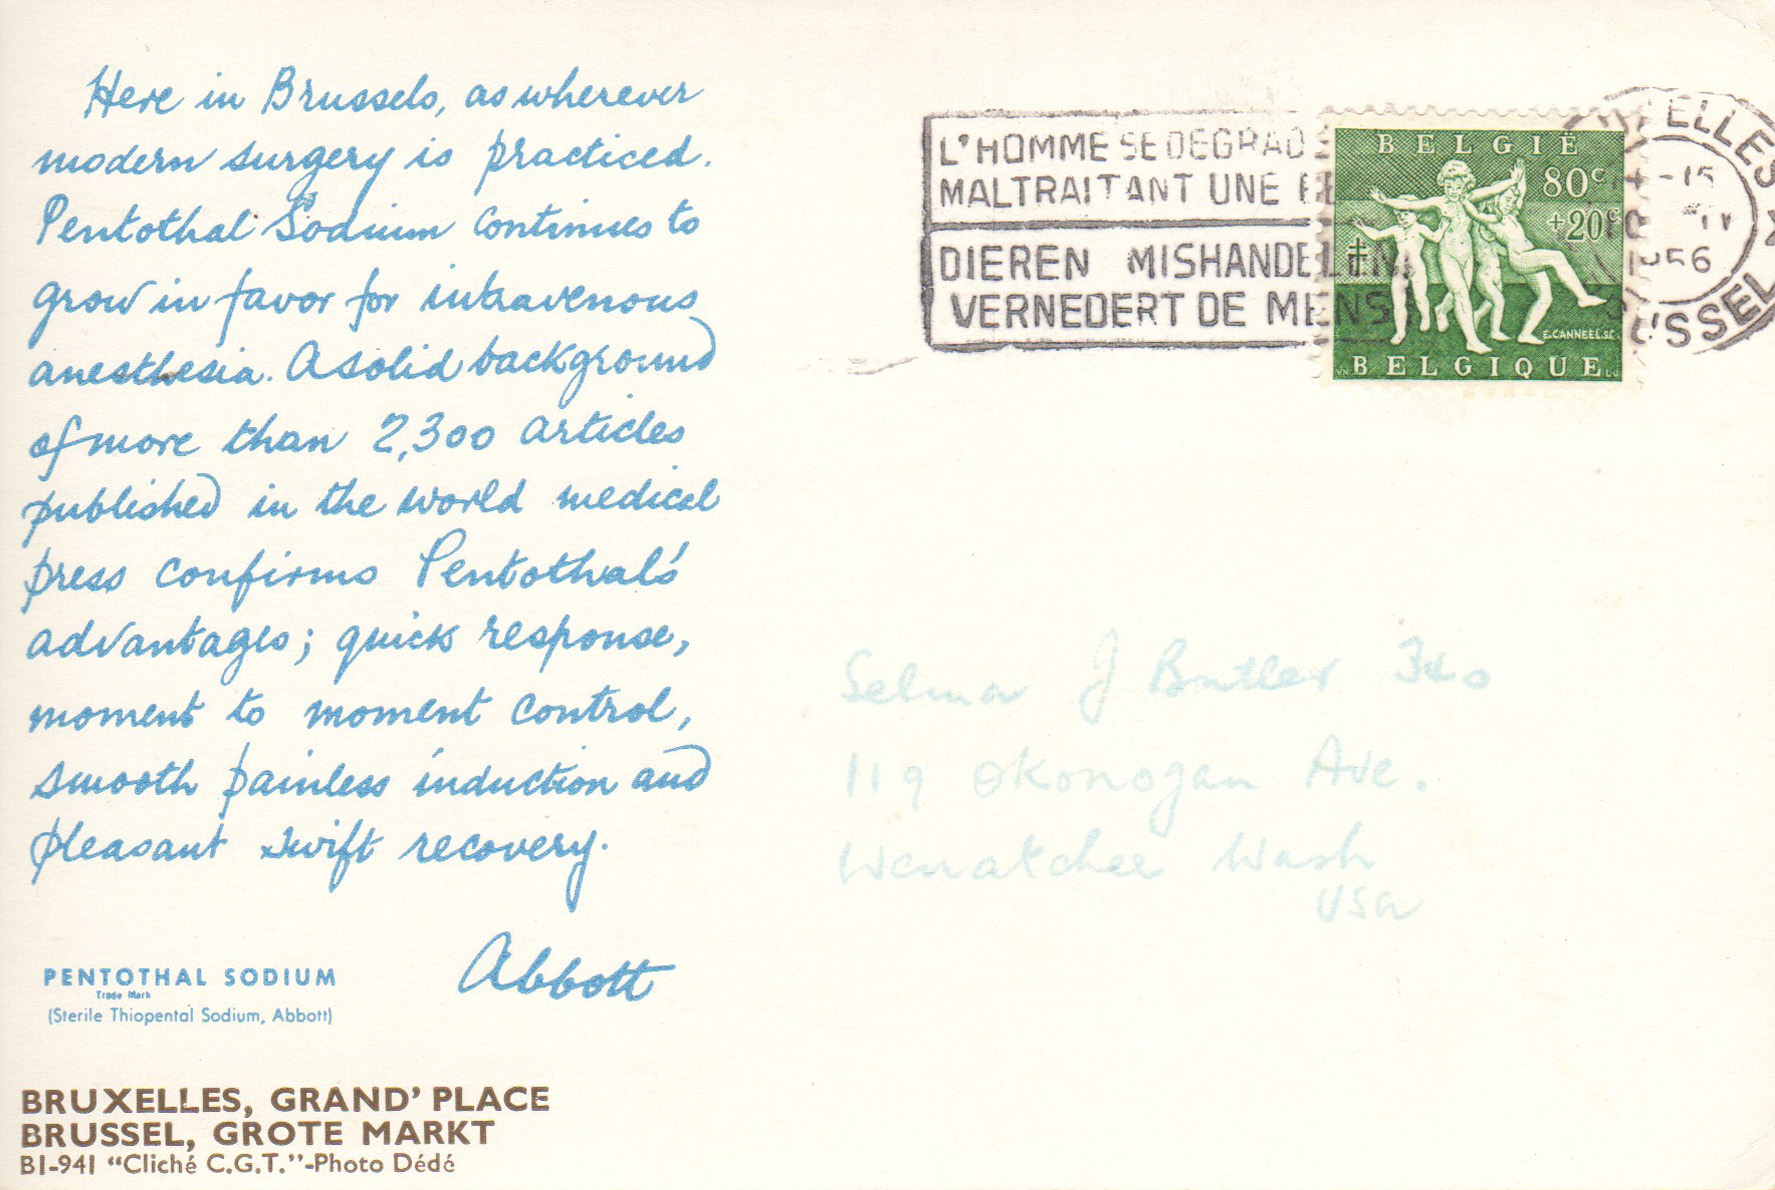 Here in Brussels, as wherever
modern surgery is practiced.
Pentothal Sodium continues to
grow in favor for intravenous
anesthesia. A solid background
of more than 2,300 articles
published in the world medical
press confirms Pentothal's
advantages; quick response,
moment to moment control,
smooth painless induction and
pleasant swift recovery.
Abbott
PENTOTHAL SODIUM
Trade Mark
(Sterile Thiopental Sodium, Abbott)
BRUXELLES, GRAND' PLACE
BRUSSEL, GROTE MARKT
B1-941 "Cliché C.G.T."-Photo Dédé
L'HOMME SE DEGRAD
MALTRAITANT UNE
DIEREN MISHANDELEN
VERNEDERT DE MENS
BELGIË
80c
+20c
E.CANNEEL.SC.
BELGIQUE
1956
Selma J Butler
119 Okonogan Ave.
Wenatchee Wash
USA